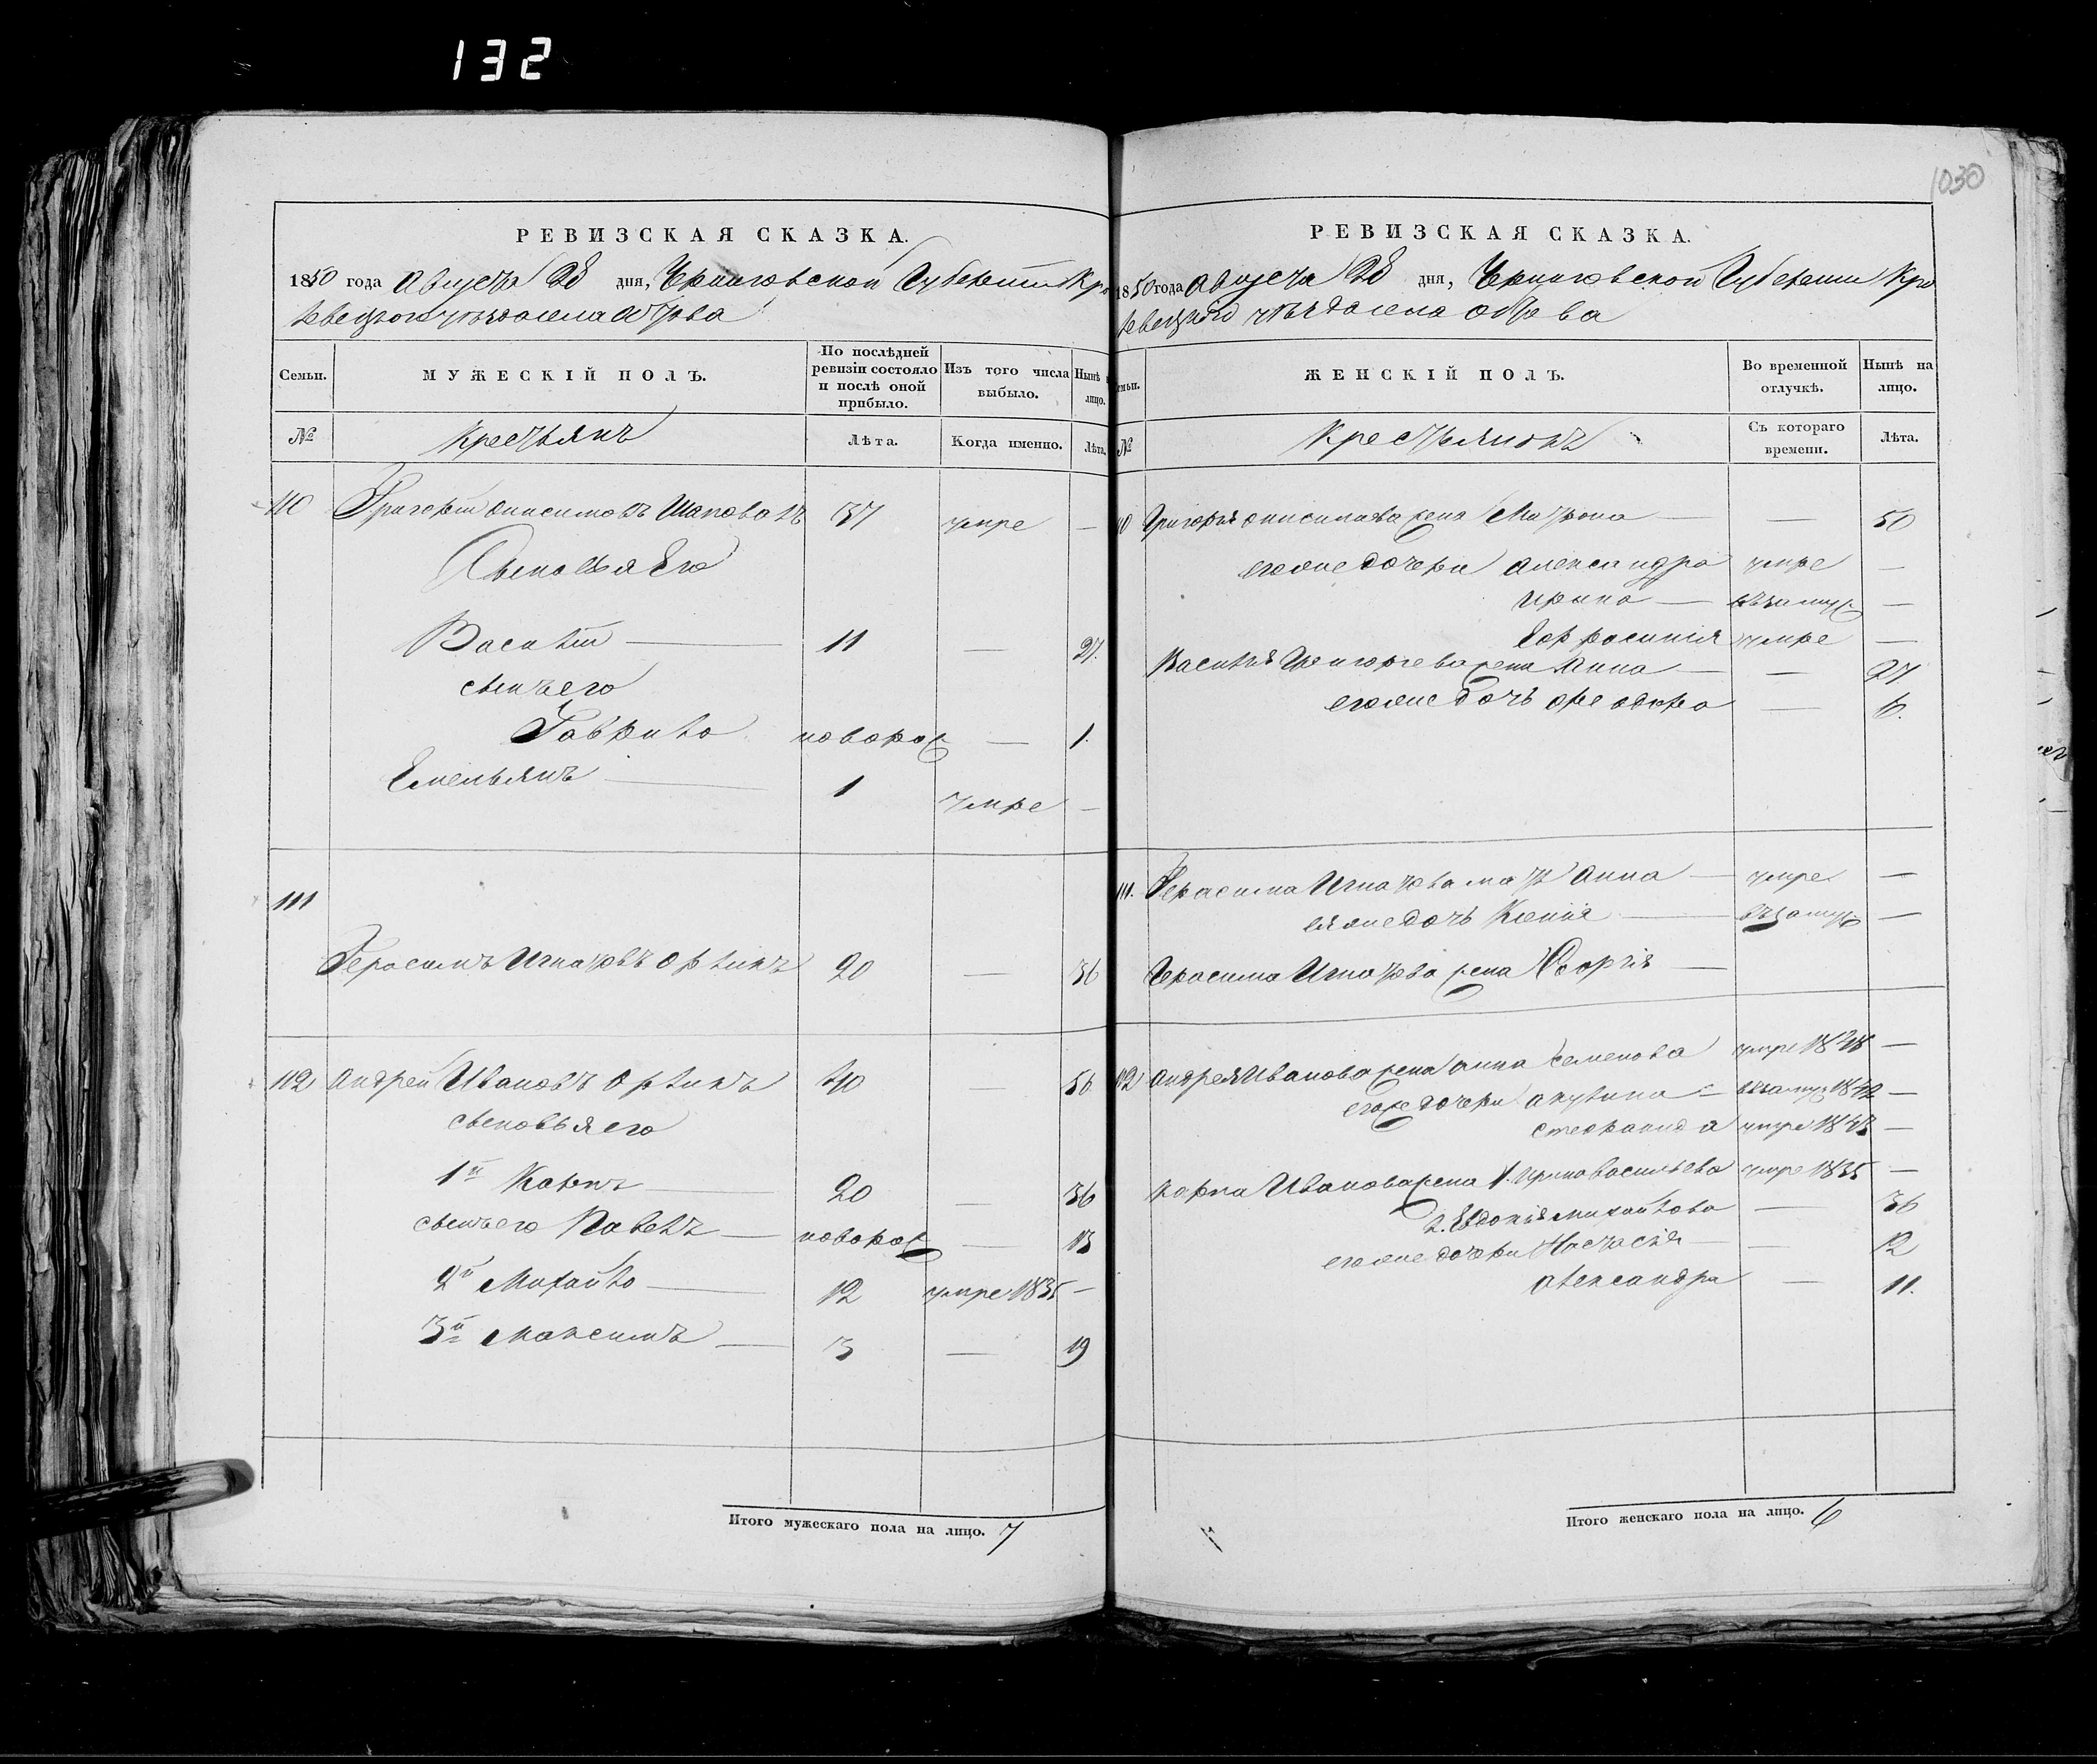 132
1030
РЕВИЗСКАЯ СКАЗКА.
1850 года Августа 28 дня, Черниговской Губернии Кро
левецкого уѣзда села
Семьи.
МУЖЕСКІЙ ПОЛЪ.
По послѣдней ревизіи состояло и послѣ оной прибыло.
Изъ того числа выбыло.
Нынѣ лицо.
№
Крестьянъ
Лѣта.
Когда именно.
Лѣта.
110 Григорій Онисимовъ Шаповалъ 37 умре —
Сыновья Его
Василій — 11 — 27.
сынъ его
Гаврило новорож — 1.
Емельянъ — 1 умре —
111
Герасимъ Игнатовъ 20 — 36
112 Андрей Ивановъ 40 — 56
сыновья его
1й Карпъ 20 — 36
сынъ его Павелъ — новорож — 13
2й Михайло — 12 умре 1835 —
3й Максимъ — 3 — 19
Итого мужескаго пола на лицо. 7
РЕВИЗСКАЯ СКАЗКА.
1850 года Августа 28 дня, Черниговской Губернии Кро
левецкого уѣзда села
ЖЕНСКІЙ ПОЛЪ.
Во временной отлучкѣ.
Нынѣ на лицо.
№
Крестьянокъ
Съ котораго времени.
Лѣта.
110 Григорія Онисимова жена Матрона — — 50
его же дочери Александра умре —
Ирина — въ замуж —
Ефросинія умре —
Василія Григорьева жена Анна — — 27
его же дочь Феодора — 6.
111. Герасима Игнатова мать Анна — умре —
ея же дочь Ксенія — въ замуж —
Герасима Игнатова жена —
112 Андрея Иванова жена Анна Семенова умре 1848 —
его же дочери Акулина — въ замуж 1842 —
Стефанида умре 1843 —
Карпа Иванова жена 1. Ирина Васильева умре 1835 —
2. Евдокія Михайлова — 36
его же дочери Настасія — — 12
Александра — 11.
Итого женскаго пола на лицо. 6